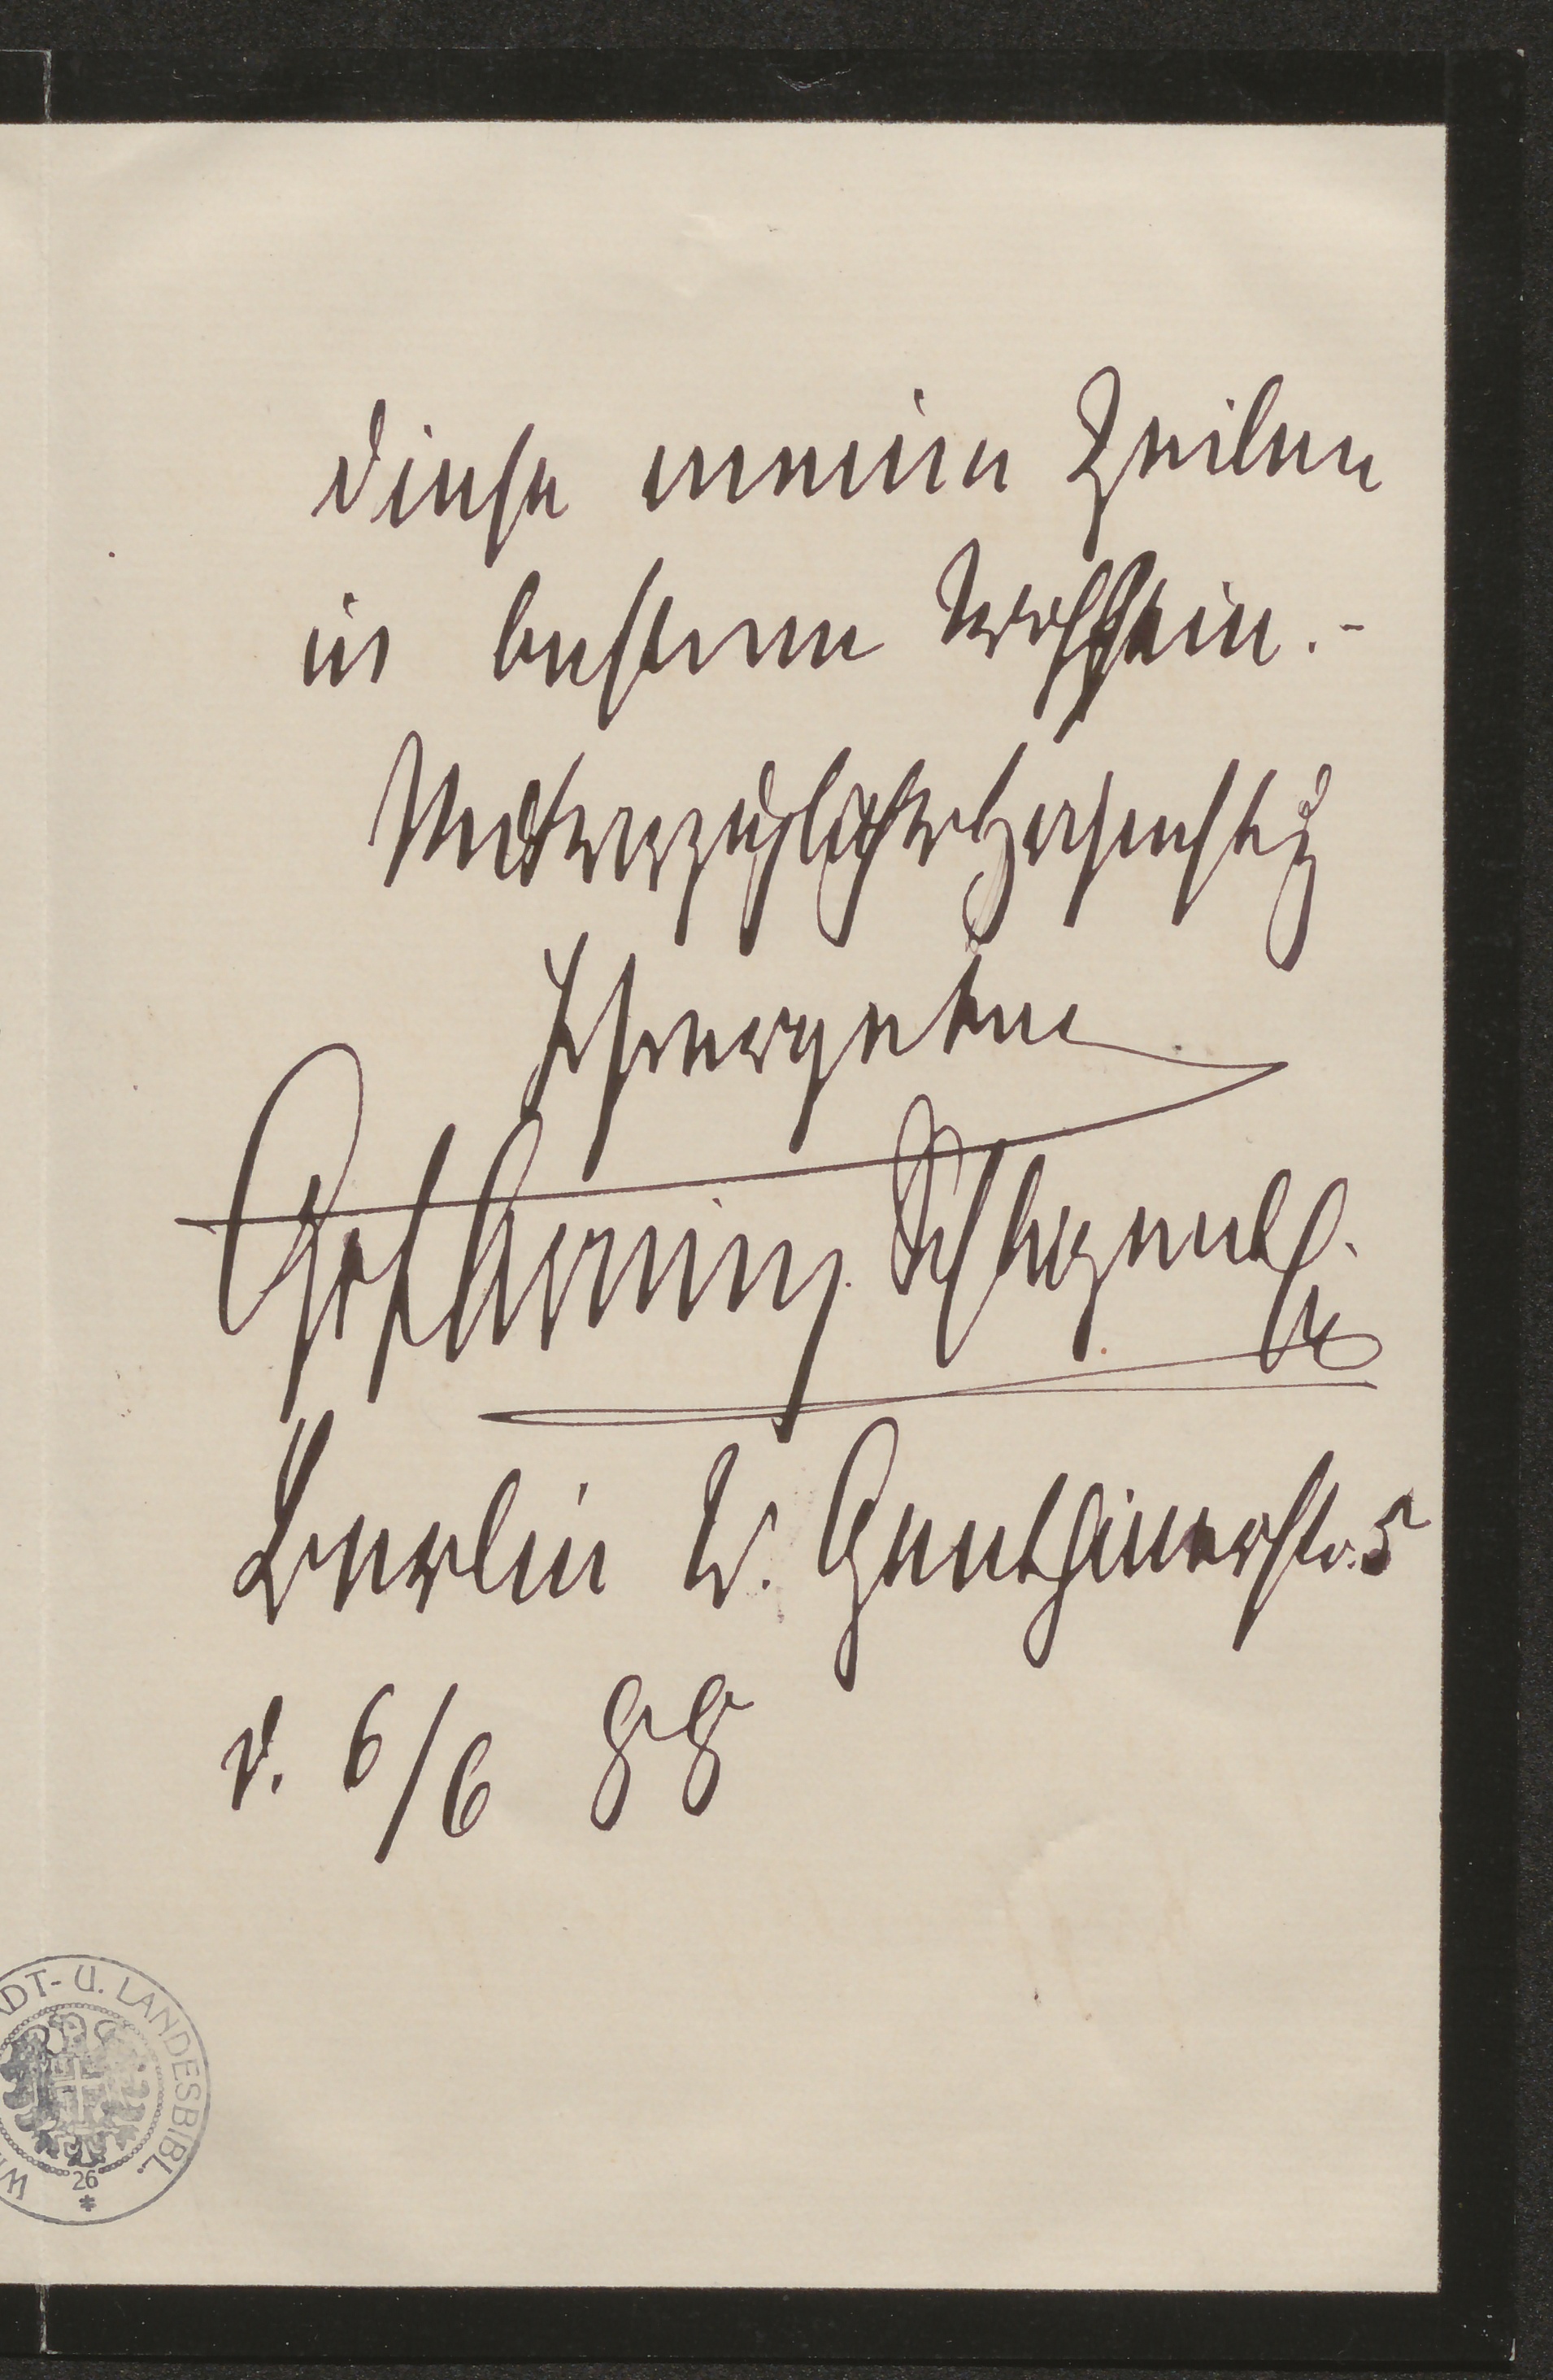 diese meine Zeilen
in bestem Wohlsein. -
Mit vorzüglicher Hochachtung
Ihr ergebener
Berlin W. Genthinerstr. 5
d. 6/6 88
DT- U. LANDESBIBL.
W
26